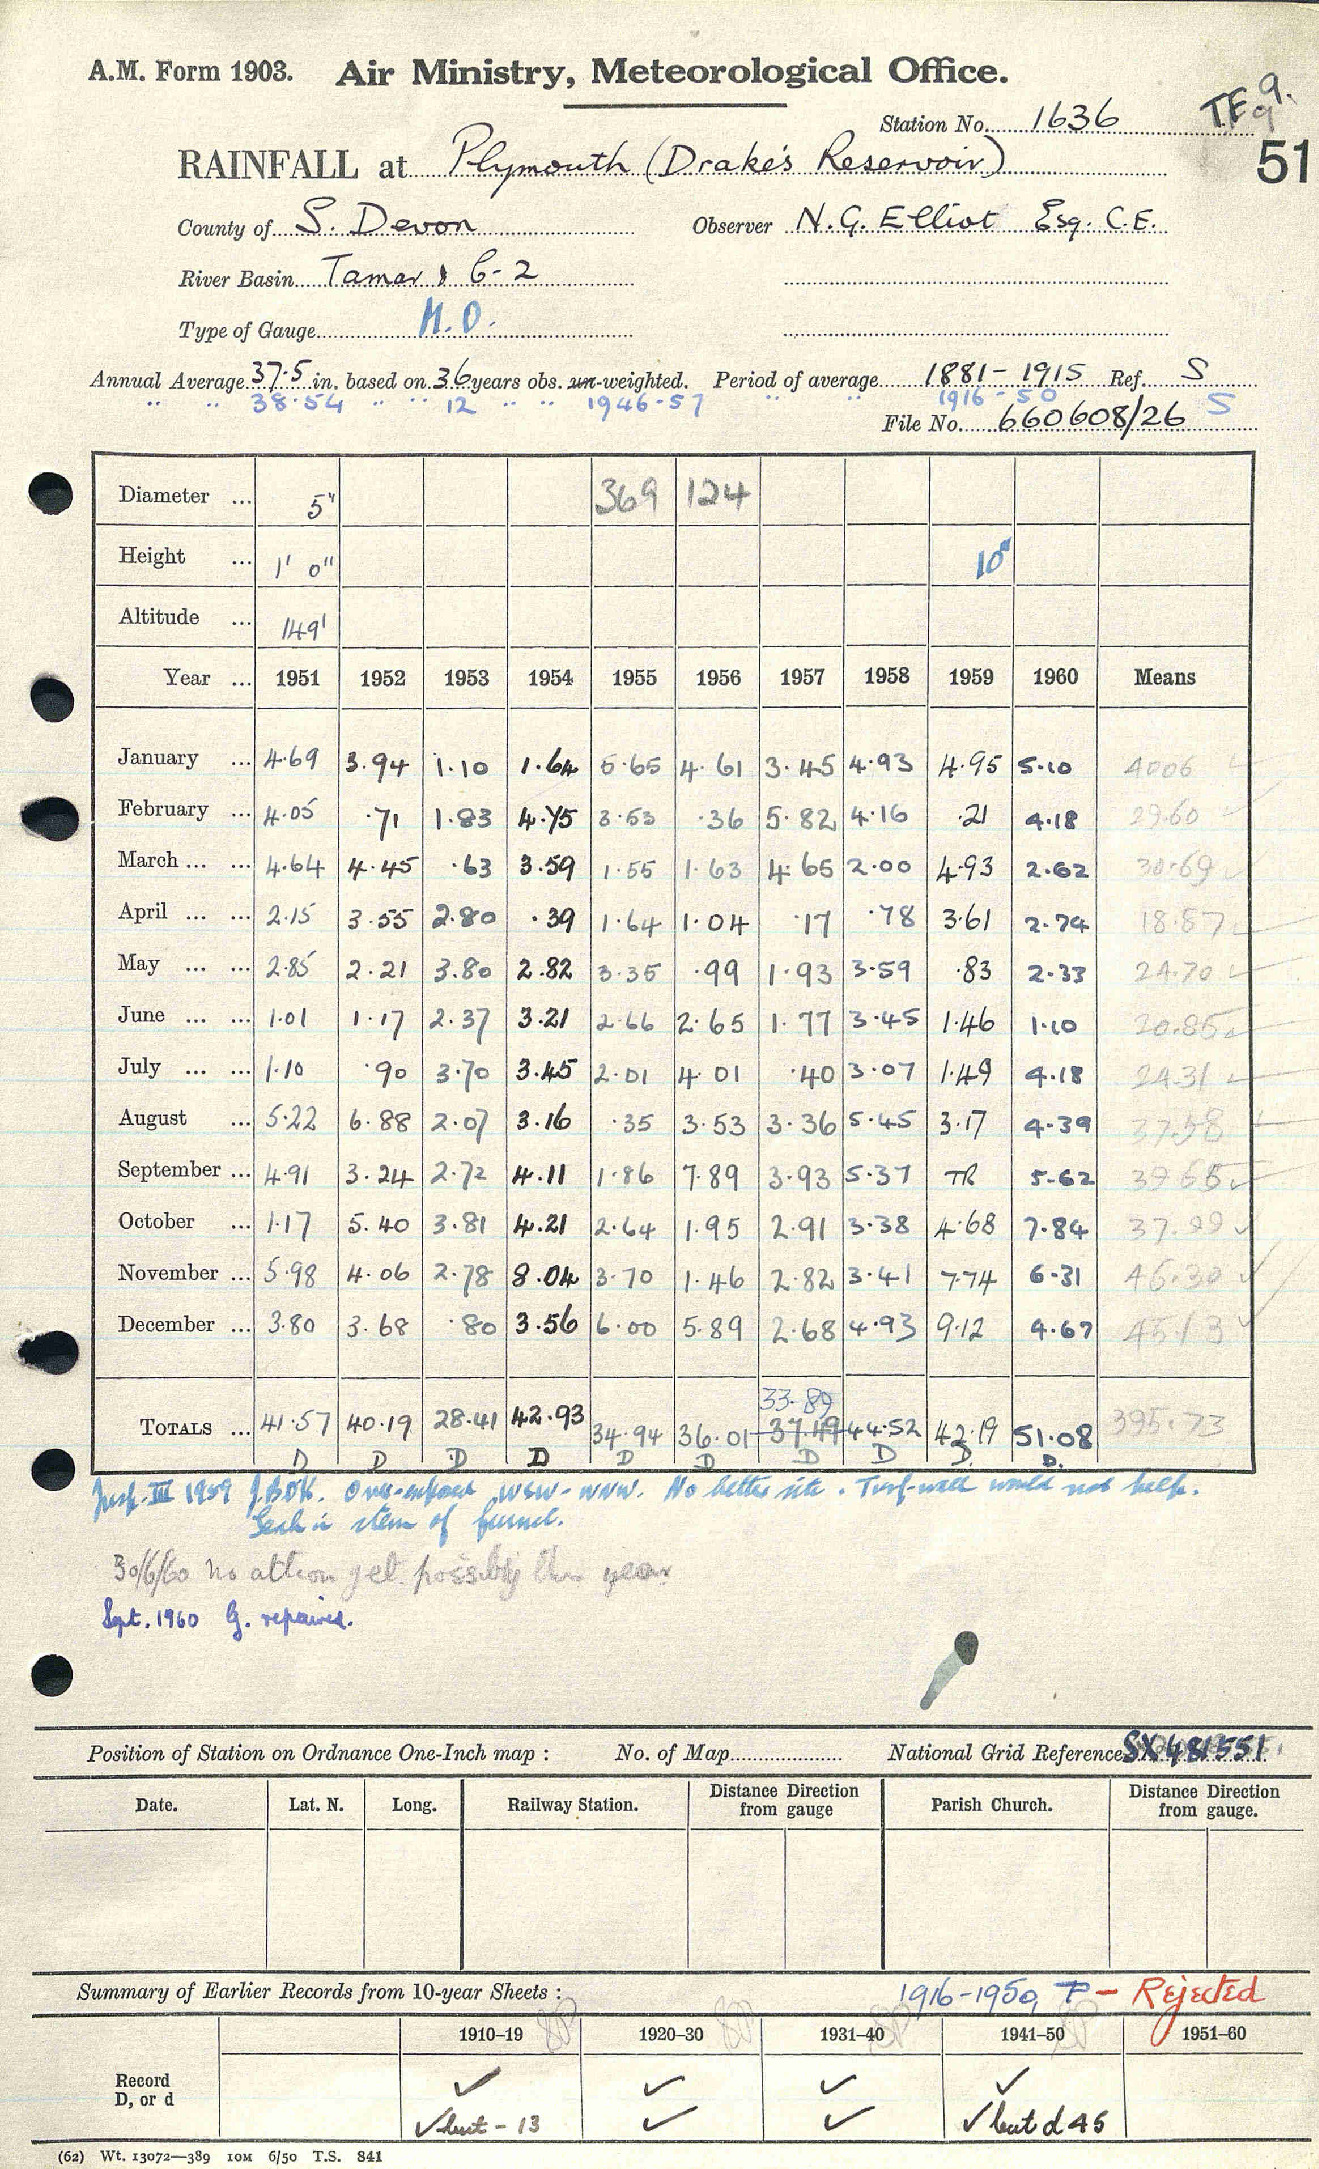 A.M. Form 1903. Air Ministry, Meteorological Office.
Station No. 1636 T.F. 9.
9
51
RAINFALL at Plymouth (Drake's Reservoir)
County of S. Devon Observer N.G. Elliot Esq. C.E.
River Basin Tamar & 6-2
Type of Gauge M.O.
Annual Average 37.5 in. based on 36 years obs. un-weighted. Period of average 1881-1915 Ref. S
" " 38.54 " " 12 " " 1946-57 " " 1916-50
File No. 660608/26 S
Diameter ... 5" 369 124
Height ... 1' 0" 10"
Altitude ... 149'
Year ... 1951 1952 1953 1954 1955 1956 1957 1958 1959 1960 Means
January ... 4.69 3.94 1.10 1.64 5.65 4.61 3.45 4.93 4.95 5.10 4006
February ... 4.05 .71 1.83 4.75 3.53 .36 5.82 4.16 .21 4.18 29.60
March ... ... 4.64 4.45 .63 3.59 1.55 1.63 4.65 2.00 4.93 2.62 30.69
April ... ... 2.15 3.55 2.80 .39 1.64 1.04 .17 .78 3.61 2.74 18.87
May ... ... 2.85 2.21 3.80 2.82 3.35 .99 1.93 3.59 .83 2.33 24.70
June ... ... 1.01 1.17 2.37 3.21 2.66 2.65 1.77 3.45 1.46 1.10 20.85
July ... ... 1.10 .90 3.70 3.45 2.01 4.01 .40 3.07 1.49 4.18 24.31
August ... 5.22 6.88 2.07 3.16 .35 3.53 3.36 5.45 3.17 4.39 37.58
September ... 4.91 3.24 2.72 4.11 1.86 7.89 3.93 5.37 TR 5.62 39.65
October ... 1.17 5.40 3.81 4.21 2.64 1.95 2.91 3.38 4.68 7.84 37.99
November ... 5.98 4.06 2.78 8.04 3.70 1.46 2.82 3.41 7.74 6.31 46.30
December ... 3.80 3.68 .80 3.56 6.00 5.89 2.68 4.93 9.12 4.67 45.13
33.89
TOTALS ... 41.57 40.19 28.41 42.93 34.94 36.01 37.49 44.52 42.19 51.08 395.73
D D D D D D D D D. D.
Insp. III 1959 Over-exposed WSW-WNW. No better site. Turf-wall would not help.
Leak in stem of funnel.
30/6/60 No action yet. possibly this year
Sept. 1960 G. repaired.
Position of Station on Ordnance One-Inch map : No. of Map National Grid Reference SX481551
Date. Lat. N. Long. Railway Station. Distance Direction from gauge Parish Church. Distance Direction from gauge.
Summary of Earlier Records from 10-year Sheets : 1916-1950 - Rejected
1910-19 1920-30 1931-40 1941-50 1951-60
Record ✓ ✓ ✓ ✓
D, or d ✓ but - 13 ✓ ✓ ✓ but d 45
(62) Wt. 13072—389 10M 6/50 T.S. 841